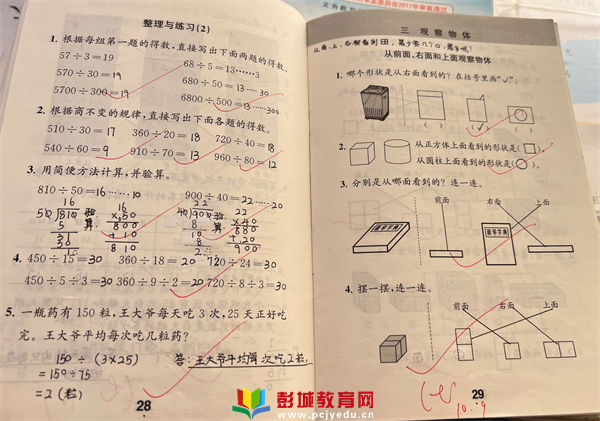 整理与练习(2)
1. 根据每组第一题的得数,直接写出下面两题的得数。
57÷3=19
68÷5=13……3
570÷30=19
680÷50=13……30
5700÷300=19
6800÷500=13……300
2. 根据商不变的规律,直接写出下面各题的得数。
510÷30=17 360÷20=18 720÷40=18
540÷60=9 910÷70=13 960÷80=12
3. 用简便方法计算,并验算。
810÷50=16……10 900÷40=22……20
4. 450÷15=30 360÷18=20 720÷24=30
450÷5÷3=30 360÷9÷2=20 720÷8÷3=30
5. 一瓶药有150粒,王大爷每天吃3次,25天正好吃
完。王大爷平均每次吃几粒药?
150÷(3×25)
=150÷75
=2(粒)
答:王大爷平均每次吃2粒。
28
三 观察物体
从前面、右面和上面观察物体
1. 哪个形状是从右面看到的?在括号里画“✓”。
( ) (✓) ( )
2. 从正方体上面看到的形状是(□)。
从圆柱上面看到的形状是(○)。
3. 分别是从哪面看到的?连一连。
前面 右面 上面
新华字典
4. 摆一摆,连一连。
前面 右面 上面
29
10.9
彭城教育网
www.pcjyedu.cn